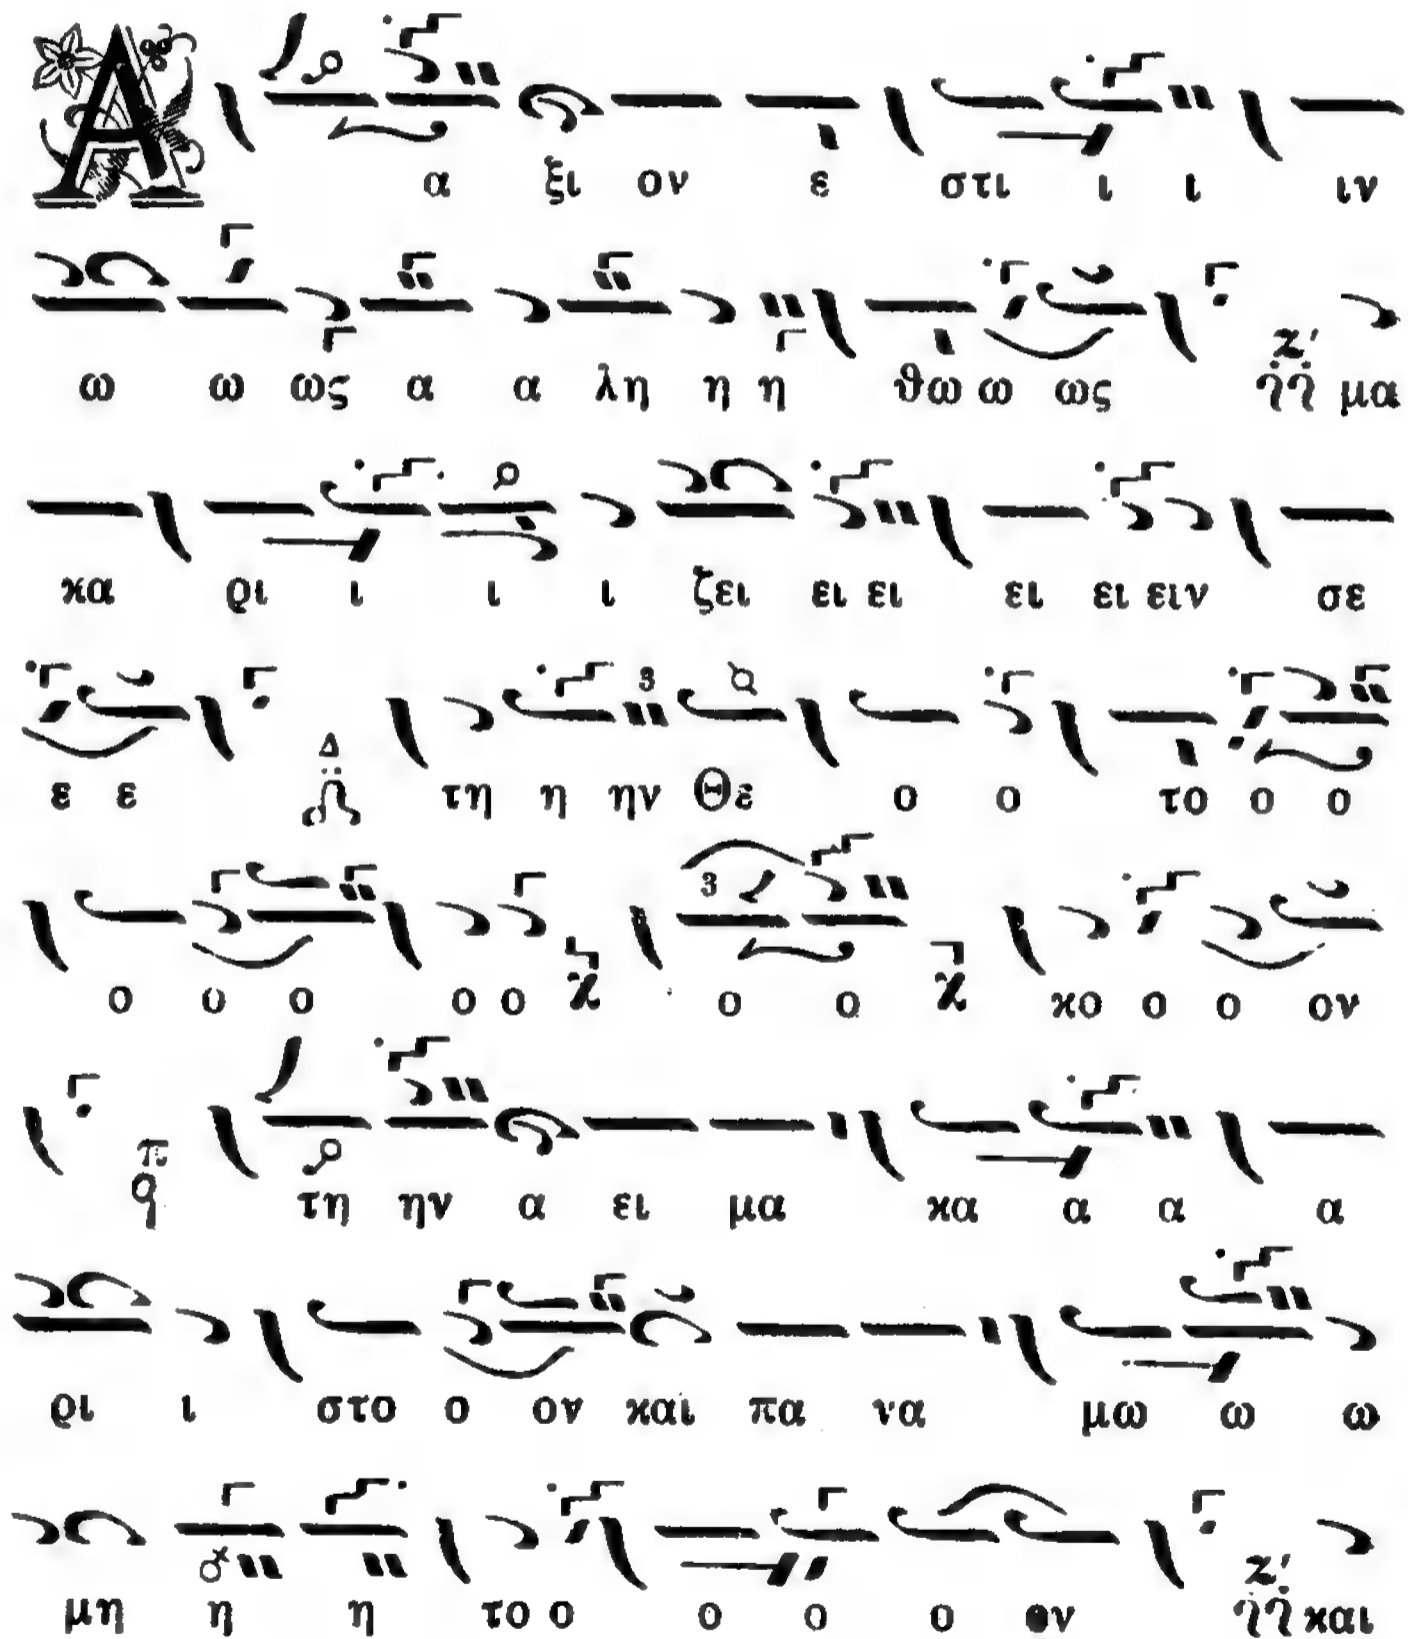 Α α ξι ον ε στι ι ι ιν
ω ω ως α α λη η η θω ω ως μα
κα ρι ι ι ι ζει ει ει ει ει ειν σε
ε ε Δ τη η ην Θε ο ο το ο ο
ο ο ο ο ο ο ο κο ο ο ον
π q τη ην α ει μα κα α α α
ρι ι στο ο ον και πα να μω ω ω
μη η η το ο ο ο ο ον και